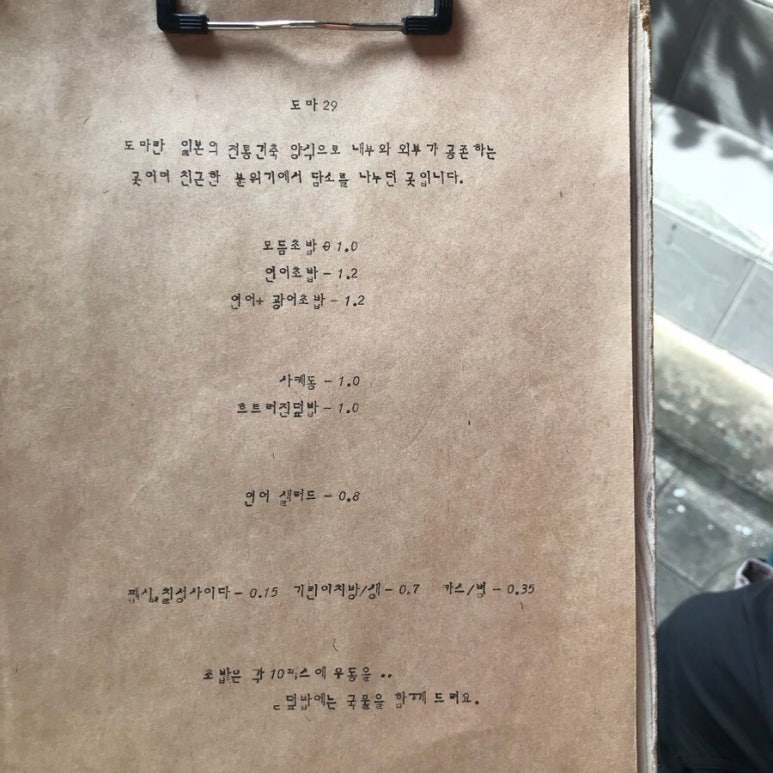 도마29
도마란 일본의 전통건축 양식으로 내부와 외부가 공존하는
곳이며 친근한 분위기에서 담소를 나누던 곳입니다.
모듬초밥 - 1.0
연어초밥 - 1.2
연어+ 광어초밥 - 1.2
사케동 - 1.0
흐트러진덮밥 - 1.0
연어 샐러드 - 0.8
펩시,칠성사이다 - 0.15 기린이치방/생 - 0.7 카스/병 - 0.35
초밥은 각 10피스에 우동을 ..
덮밥에는 국물을 함께 드려요.